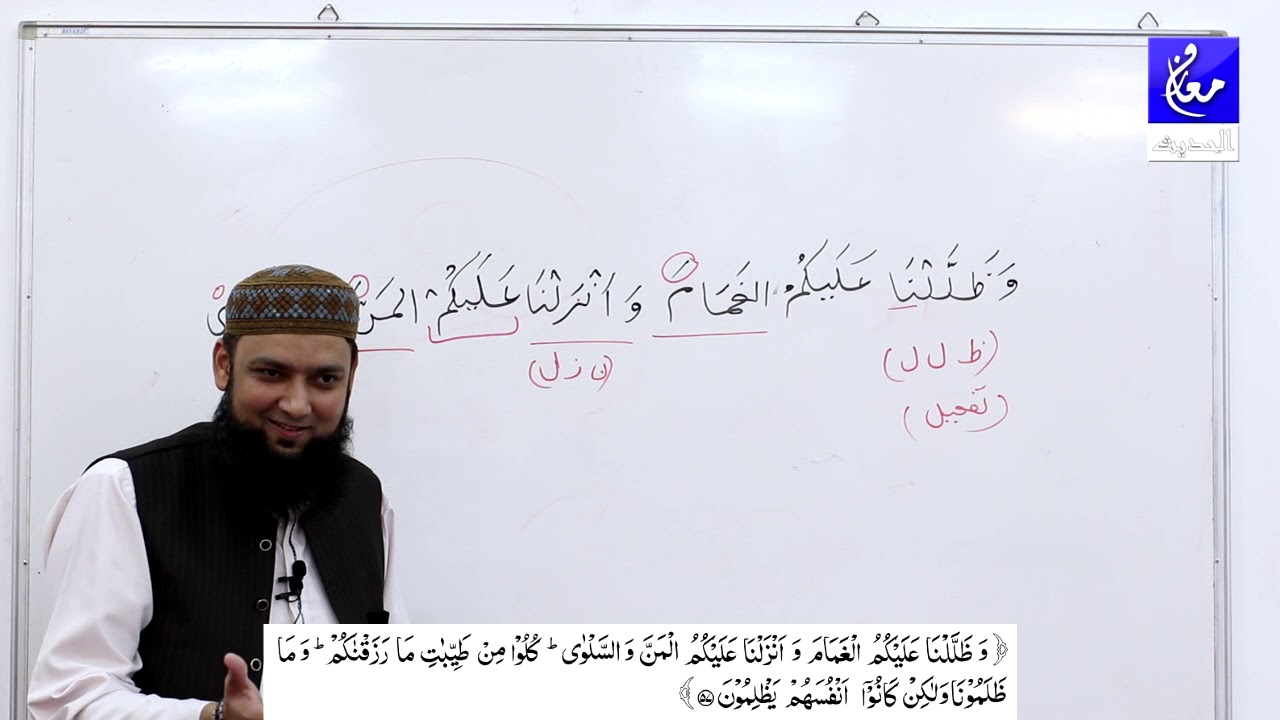 معارف
الحديث
وَظَلَّلْنَا عَلَيكُمُ الغَمَامَ وَ اَنْزَلْنَا عَلَيكُمُ المَنَّ
(ظ ل ل)
(ن ز ل)
(تفعيل)
﴿ وَ ظَلَّلْنَا عَلَيْكُمُ الْغَمَامَ وَ اَنْزَلْنَا عَلَيْكُمُ الْمَنَّ وَ السَّلْوٰى ؕ كُلُوْا مِنْ طَيِّبٰتِ مَا رَزَقْنٰكُمْ ؕ وَ مَا
ظَلَمُوْنَا وَلٰكِنْ كَانُوْۤا اَنْفُسَهُمْ يَظْلِمُوْنَ ۵۷ ﴾